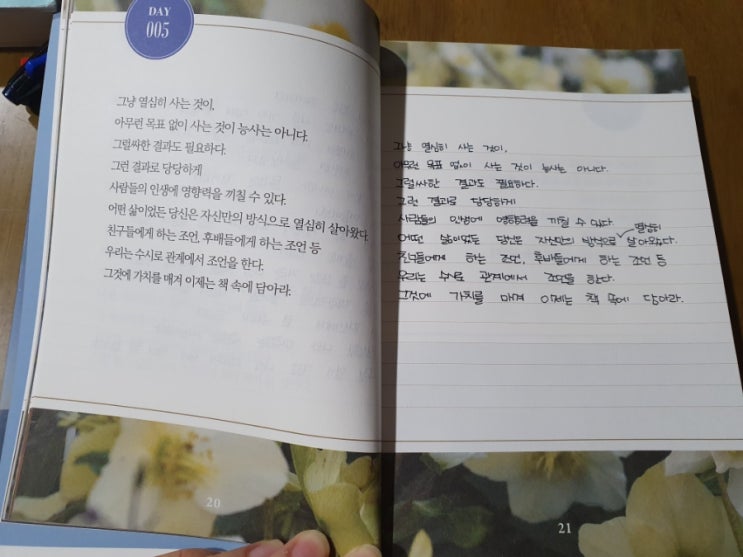 DAY
005
그냥 열심히 사는 것이,
아무런 목표 없이 사는 것이 능사는 아니다.
그럴싸한 결과도 필요하다.
그런 결과로 당당하게
사람들의 인생에 영향력을 끼칠 수 있다.
어떤 삶이었든 당신은 자신만의 방식으로 열심히 살아왔다.
친구들에게 하는 조언, 후배들에게 하는 조언 등
우리는 수시로 관계에서 조언을 한다.
그것에 가치를 매겨 이제는 책 속에 담아라.
20
그냥 열심히 사는 것이,
아무런 목표 없이 사는 것이 능사는 아니다.
그럴싸한 결과도 필요하다.
그런 결과로 당당하게
사람들의 인생에 영향력을 끼칠 수 있다.
열심히
어떤 삶이었든 당신은 자신만의 방식으로 살아왔다.
친구들에게 하는 조언, 후배들에게 하는 조언 등
우리는 수시로 관계에서 조언을 한다.
그것에 가치를 매겨 이제는 책 속에 담아라.
21